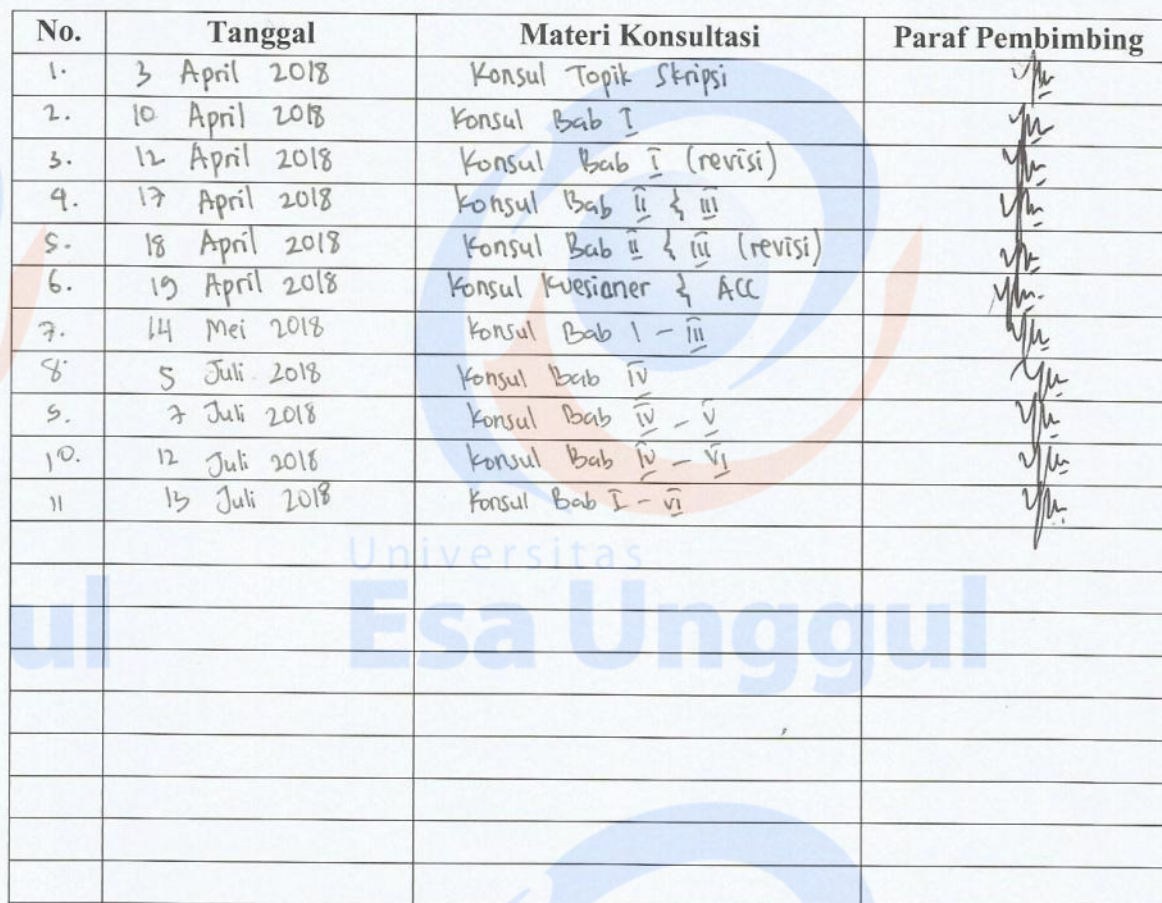 No. Tanggal Materi Konsultasi Paraf Pembimbing
1. 3 April 2018 Konsul Topik Skripsi
2. 10 April 2018 Konsul Bab I
3. 12 April 2018 Konsul Bab I (revisi)
4. 17 April 2018 Konsul Bab II & III
5. 18 April 2018 Konsul Bab II & III (revisi)
6. 19 April 2018 Konsul Kuesioner & ACC
7. 14 Mei 2018 Konsul Bab I - III
8. 5 Juli 2018 Konsul Bab IV
9. 7 Juli 2018 Konsul Bab IV - V
10. 12 Juli 2018 Konsul Bab IV - VI
11 13 Juli 2018 Konsul Bab I - VI
Universitas
ul Esa Unggul